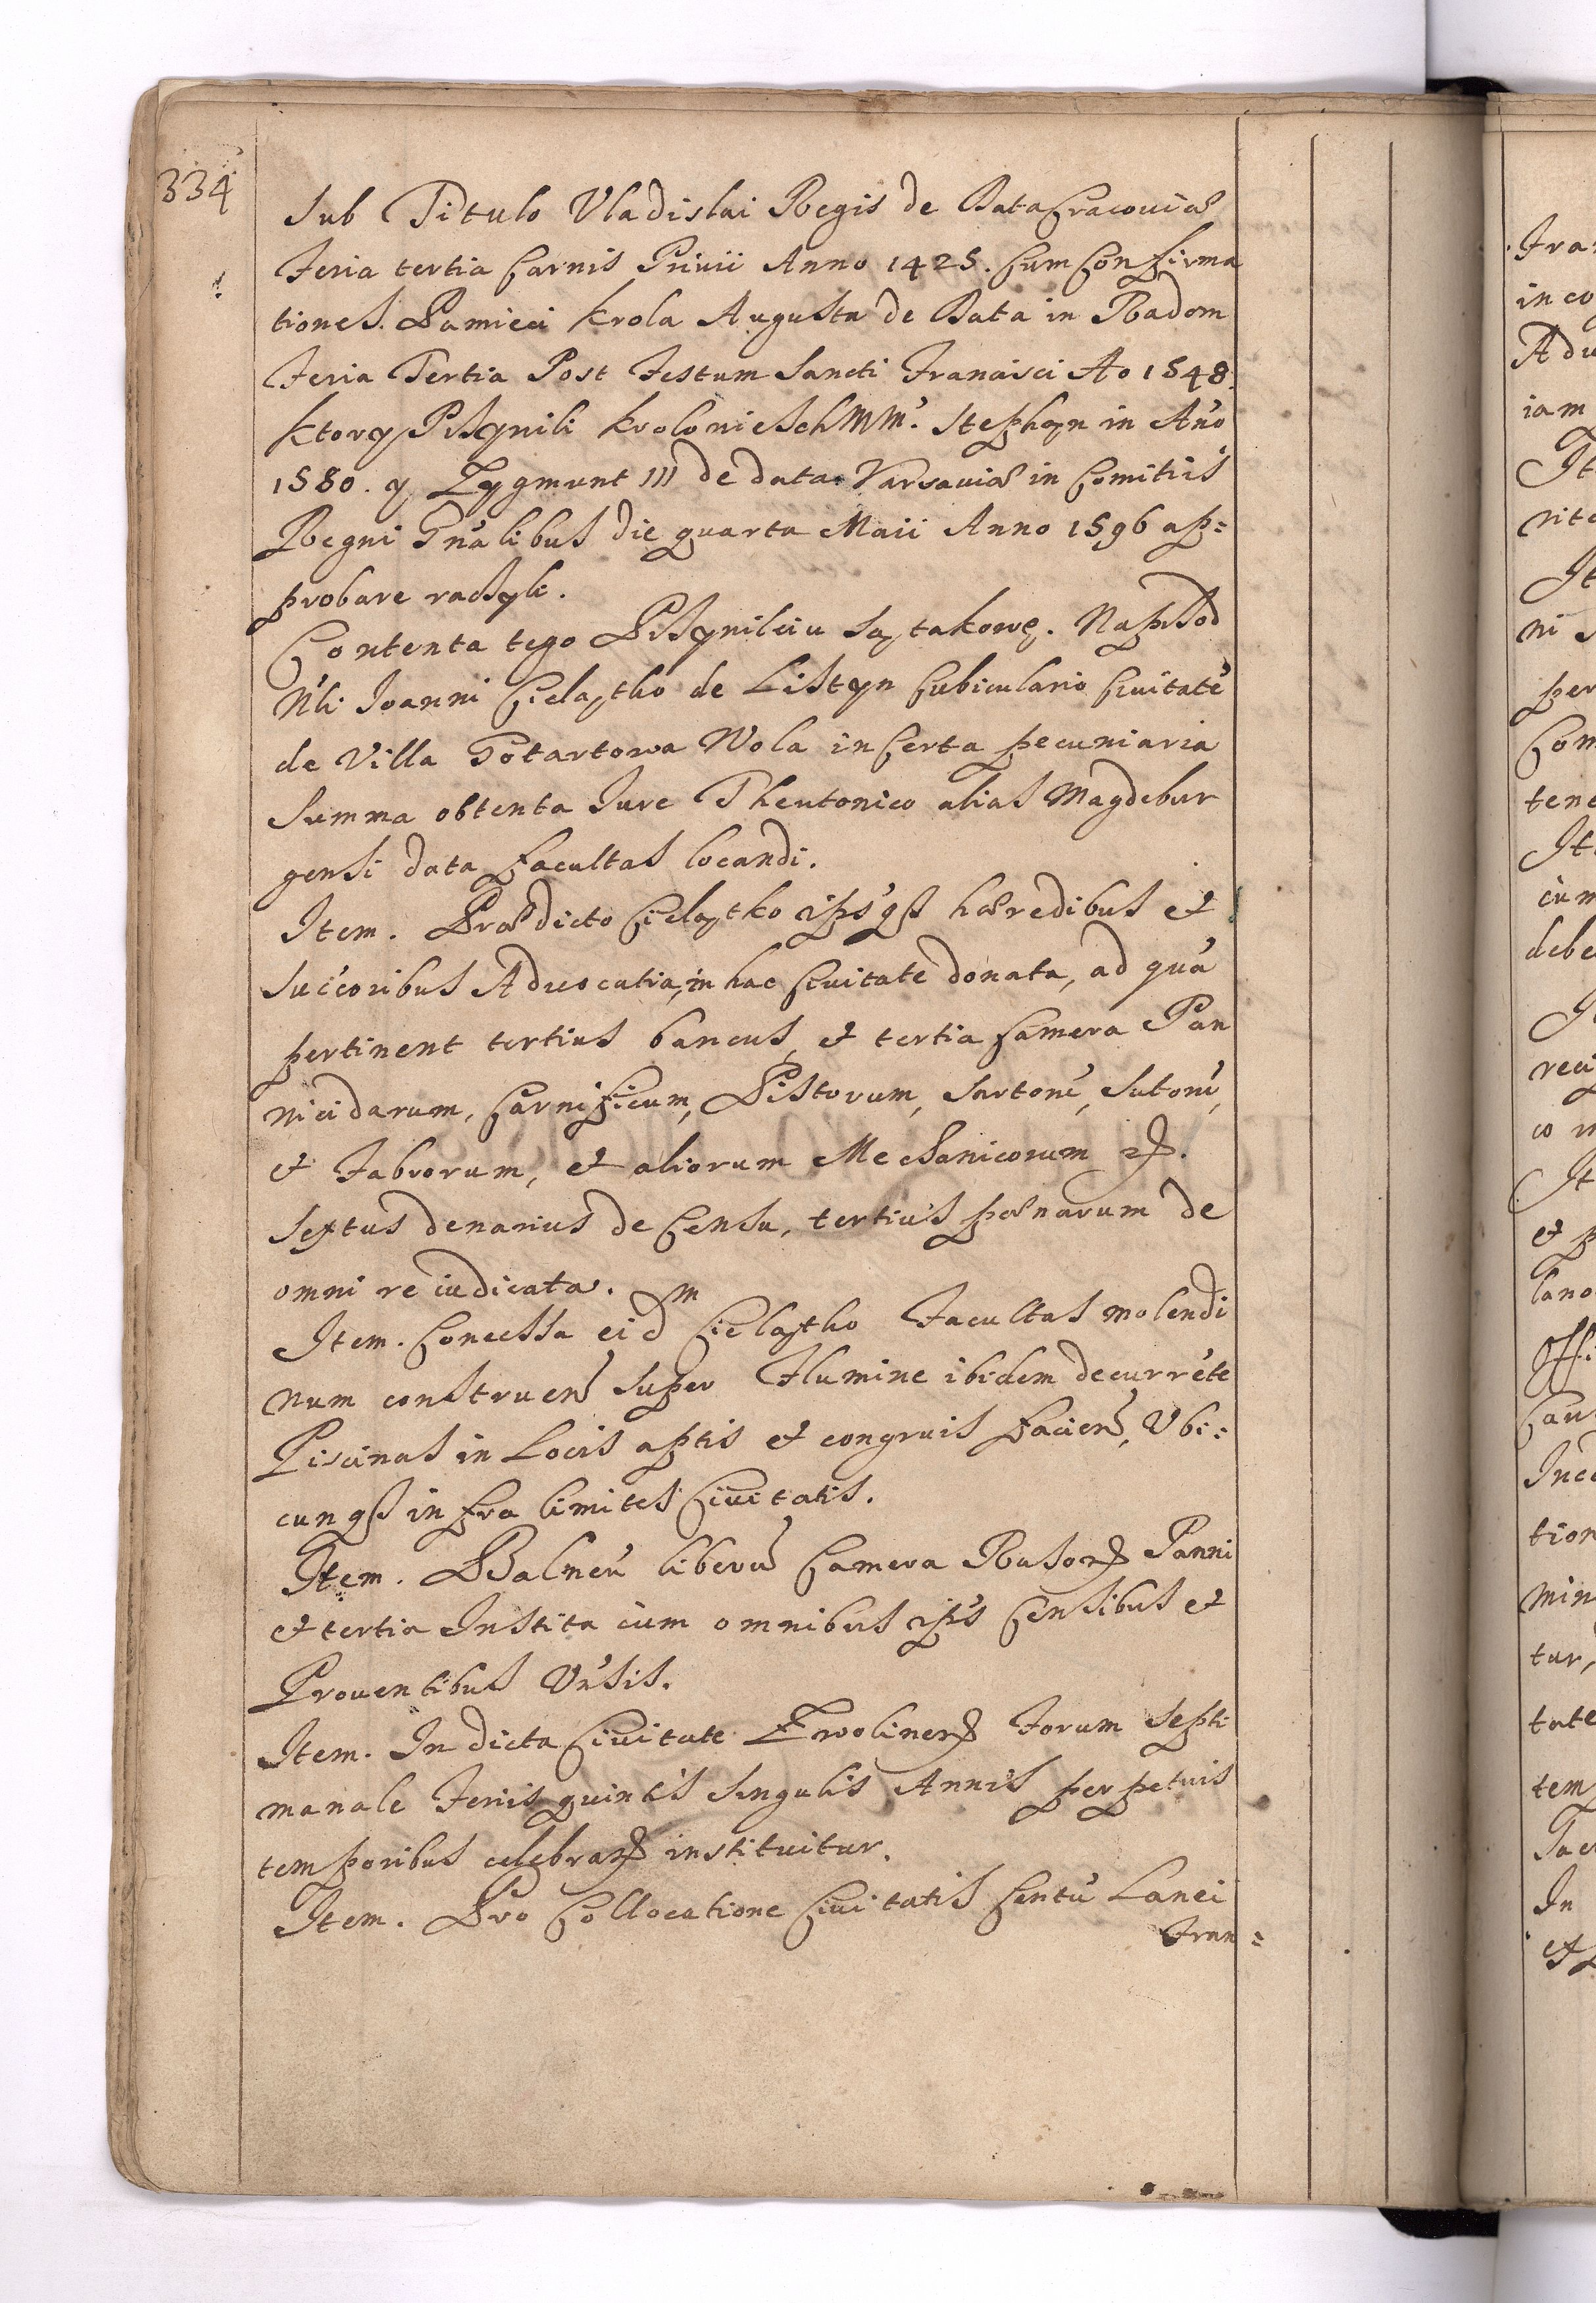 334
Sub Titulo Vladislai Regis de Data Cracouiæ
Feria tertia Carnis Priuii Anno 1425. Cum Confirma
tiones. Pamieci Krola Augusta de Data in Radom
Feria Tertia Post Festum Sancti Francisci Ao 1548.
Ktory Przynili Krolowie Ich Mm̃. Stephan in Año
1580. y Zygmunt III de data Varsauiæ in Comitiis
Regni Gñalibus die quarta Maii Anno 1596 ap=
probare raczyli.
Contenta tego Przynileiu są takowe. Naprzod
Nli Joanni Cielątko de Listyn Cubiculario Ciuitatẽ
de Villa Gotartowa Wola in Certa pecuniaria
Summa obtenta Iure Theutonico alias Magdebur
gensi data facultas locandi.
Item. Prædicto Cielątko ipsq3 hæredibus et
Succoribus Aduocatia, in hac Ciuitate donata, ad quã
pertinent tertius bancus, et tertia Camera Pan
nicidarum, Carnificum, Pistorum, Sartorũ, Sutorũ,
et Fabrorum, et aliorum Mechanicorum etc.
Sextus denarius de Censu, tertius pænarum de
omni re iudicata.
Item. Concessa eidm Cielątko Facultas molendi
num construend super Flumine ibidem decurrẽte
Piscinas in Locis aptis et congruis faciend, Vbi=
cunq3 infra limites Ciuitatis.
Item. Balneũ liberũ Camera Rasor Panni
et tertia Instita cum omnibus ips Censibus et
Prouentibus Vñsis.
Item. In dicta Ciuitate Zwolinen Forum Septi
manale Feriis quintis singulis Annis perpetuis
temporibus celebrand instituitur.
Item. Pro Collocatione Ciuitatis Centũ Lanei
Fran=